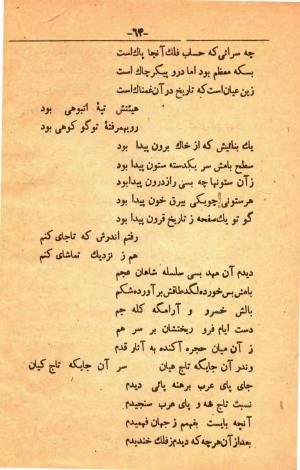 -۶۳-
چه سرائی که حساب فلك آنجا پاك است
بسکه معظم بود اما درو پیکر چاك است
زین عیان است که تاریخ در آن غمناك است
هیئتش تپهٔ انبوهی بود
رویهمرفتهٔ تو گو کوهی بود
یك بنائیش که از خاك برون پیدا بود
سطح بامش سر یکدسته ستون پیدا بود
ز آن ستونها چه بسی راز درون پیدا بود
هر ستونی چو یکی بیرق خون پیدا بود
گو تو یك صفحه ز تاریخ قرون پیدا بود
رفتم اندرش که تا جای کنم
هم ز نزدیك تماشای کنم
دیدم آن مهد بسی سلسله شاهان عجم
بامش بس خورده لگد طاقش بر آورده شکم
بالش خسرو و آرامگه کله جم
دست ایام فرو ریختشان بر سر هم
ز آن میان حجره آکنده به آثار قدم
وندر آن جایگه تاج عیان سر آن جایگه تاج کیان
جای پای عرب برهنه پائی دیدم
نسبت تاج شه و پای عرب سنجیدم
آنچه بایست بفهمم ز جهان فهمیدم
بعد از آن هر چه که دیدم ز فلك خندیدم